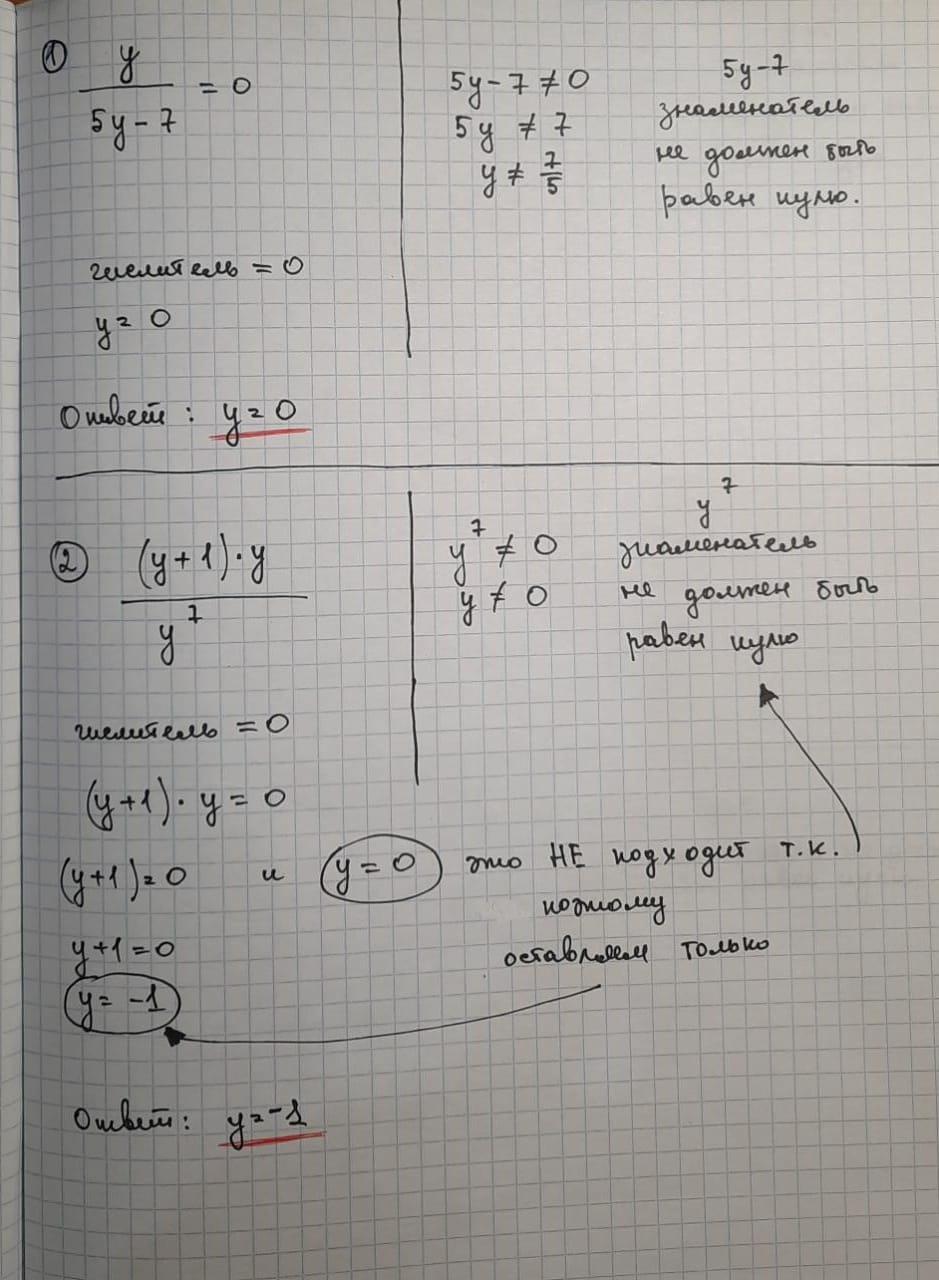 ① y
5y-7 = 0
5y-7 ≠ 0
5y ≠ 7
y ≠ 7/5
5y-7
знаменатель
не должен быть
равен нулю.
числитель = 0
y = 0
Ответ : y = 0
② (y+1)·y
y⁷
y⁷ ≠ 0
y ≠ 0
y⁷
знаменатель
не должен быть
равен нулю
числитель = 0
(y+1)· y = 0
(y+1) = 0 и y = 0 это НЕ подходит т.к.
поэтому
оставляем только
y+1 = 0
y = -1
Ответ: y = -1